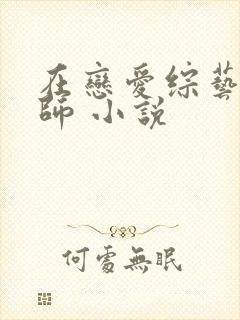 在戀愛綜藝
師 小說
何處無眠